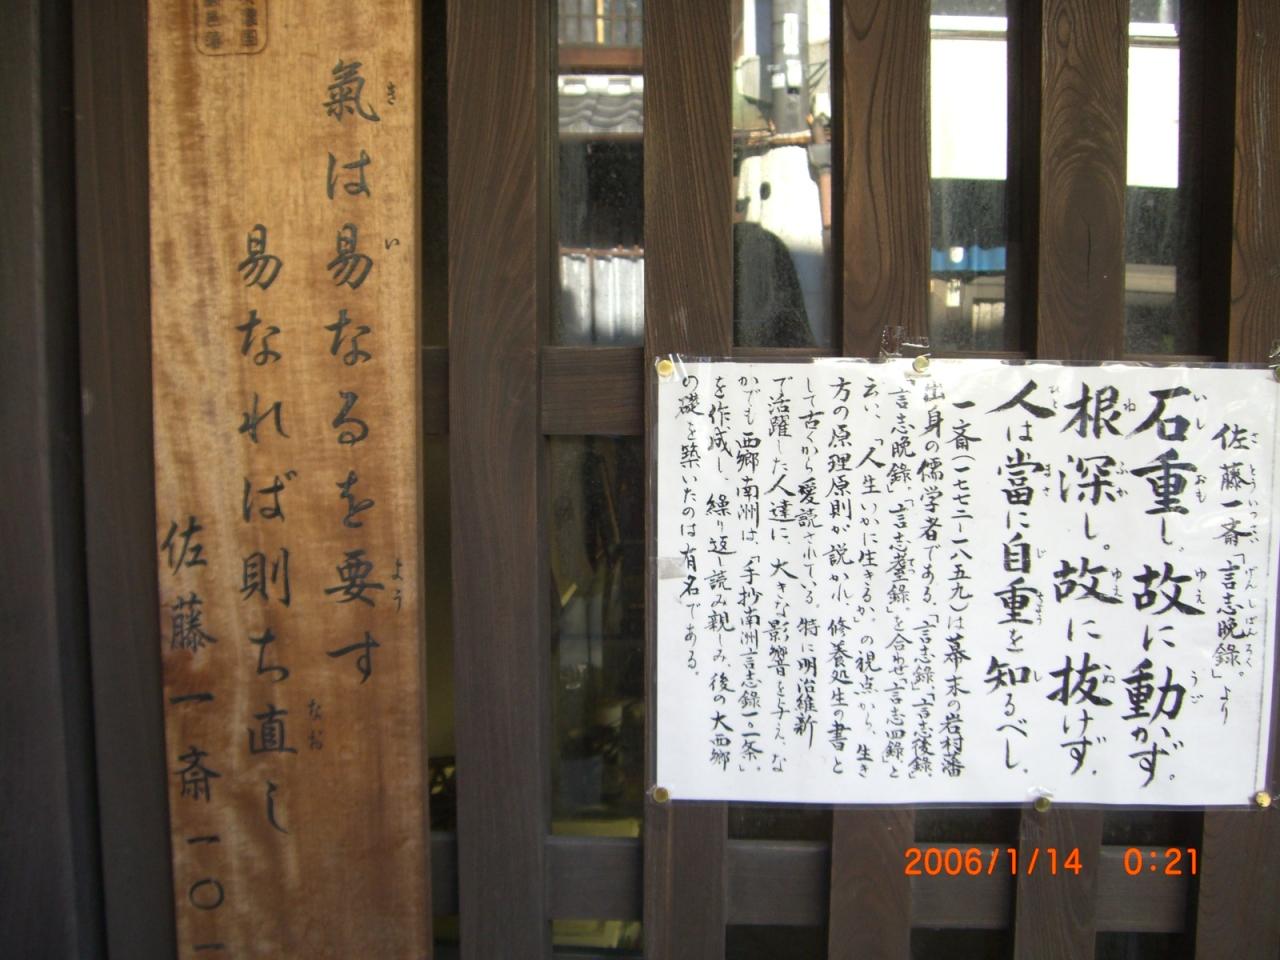 佐藤一斎「言志晩録」より
石重し。故に動かず。
根深し。故に抜けず。
人は當に自重を知るべし。
一斎(一七七二ー一八五九)は幕末の岩村藩
出身の儒学者である。「言志録」「言志後録」
「言志晩録」「言志耋録」を合わせ「言志四録」と
云い、「人生いかに生きるか」の視点から、生き
方の原理原則が説かれ、修養処生の書と
して古くから愛読されている。特に明治維新
で活躍した人達に、大きな影響を与え、な
かでも西郷南洲は、「手抄南洲言志録一〇一条」
を作成し、繰り返し読み親しみ、後の大西郷
の礎を築いたのは有名である。
氣は易なるを要す
易なれば則ち直し
佐藤一斎 一〇一
2006/1/14 0:21